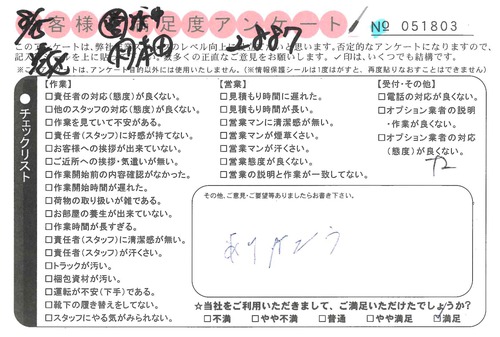 お客様満足度アンケート № 051803
このアンケートは、弊社
のレベル向上
と思います。否定的なアンケートになりますので、
記入
ルを上に貼
多くの正直なご意見をお願いします。✓印は、いくつでも結構です。
は、アンケート目的以外には使用いたしません。(※情報保護シールは1度はがすと、再度貼りなおすことはできません)
チェックリスト
【作業】
□責任者の対応(態度)が良くない。
□他のスタッフの対応(態度)が良くない。
□作業を見ていて不安がある。
□責任者(スタッフ)に好感が持てない。
□お客様への挨拶が出来ていない。
□ご近所への挨拶・気遣いが無い。
□作業開始前の内容確認がなかった。
□作業開始時間が遅れた。
□荷物の取り扱いが雑である。
□お部屋の養生が出来ていない。
□作業時間が長すぎる。
□責任者(スタッフ)に清潔感が無い。
□責任者(スタッフ)が汗くさい。
□トラックが汚い。
□梱包資材が汚い。
□運転が不安(下手)である。
□靴下の履き替えをしてない。
□スタッフにやる気がみられない。
【営業】
□見積もり時間に遅れた。
□見積もり時間が長い。
□営業マンに清潔感が無い。
□営業マンが煙草くさい。
□営業マンが汗くさい。
□営業態度が良くない。
□営業の説明と作業が一致してない。
【受付・その他】
□電話の対応が良くない。
□オプション業者の説明
・作業が良くない。
□オプション業者の対応
(態度)が良くない。
その他、ご意見・ご要望等ありましたらお書き下さい。
ありがとう
☆当社をご利用いただきまして、ご満足いただけたでしょうか?
□不満 □やや不満 □普通 □やや満足 ☑満足